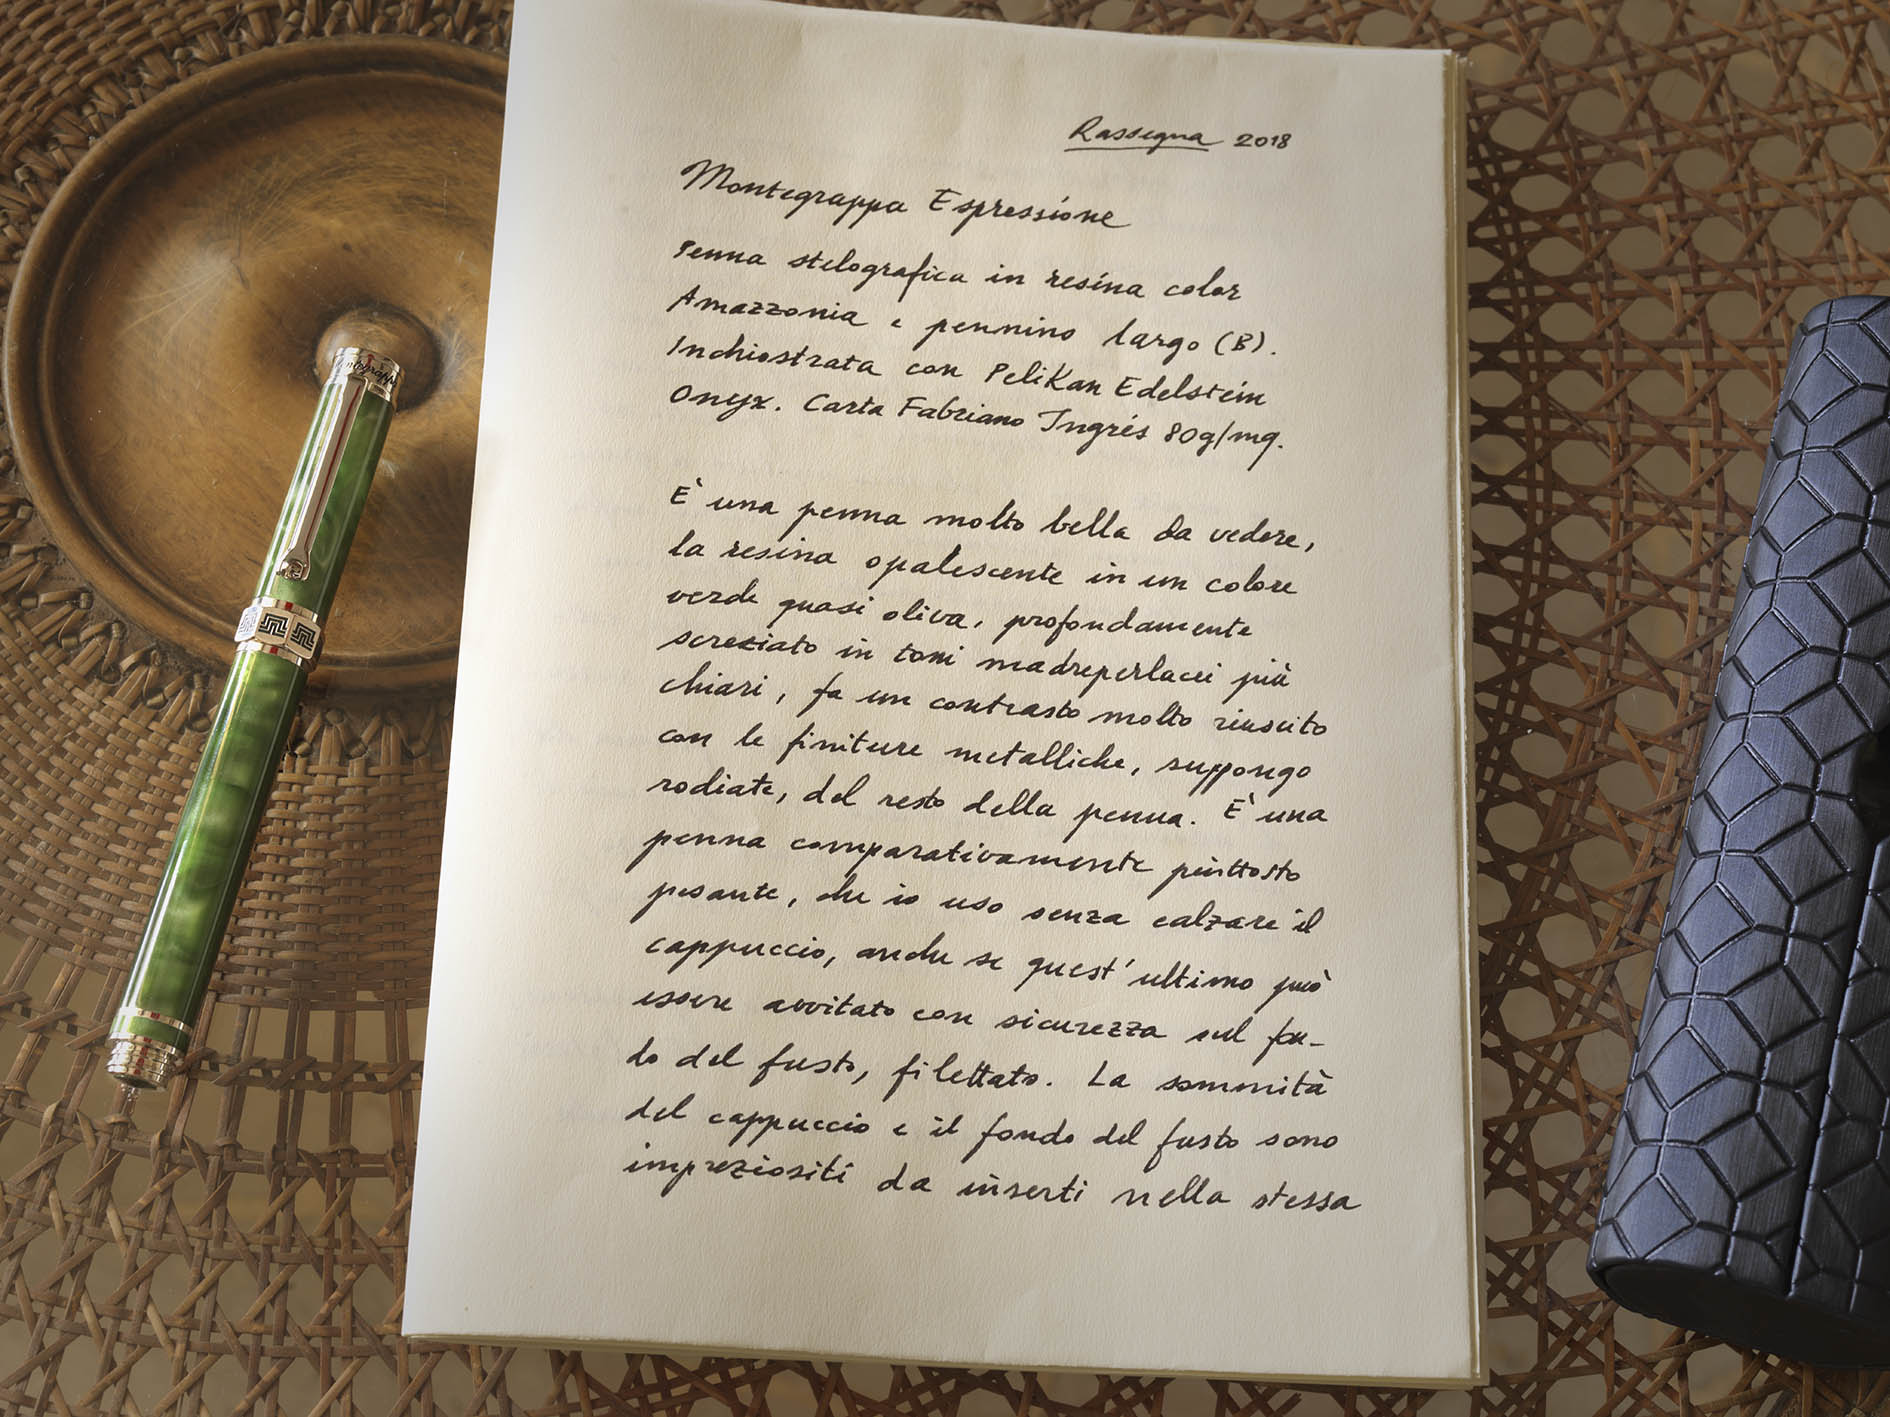 Rassegna 2018
Montegrappa Espressione
Penna stelografica in resina color
Amazzonia e pennino largo (B).
Inchiostrata con Pelikan Edelstein
Onyx. Carta Fabriano Ingres 80g/mq.
È una penna molto bella da vedere,
la resina opalescente in un colore
verde quasi oliva, profondamente
screziato in toni madreperlacei più
chiari, fa un contrasto molto riuscito
con le finiture metalliche, suppongo
rodiate, del resto della penna. È una
penna comparativamente piuttosto
pesante, che io uso senza calzare il
cappuccio, anche se quest'ultimo può
essere avvitato con sicurezza sul fon-
do del fusto, filettato. La sommità
del cappuccio e il fondo del fusto sono
impreziositi da inserti nella stessa
Montegrappa